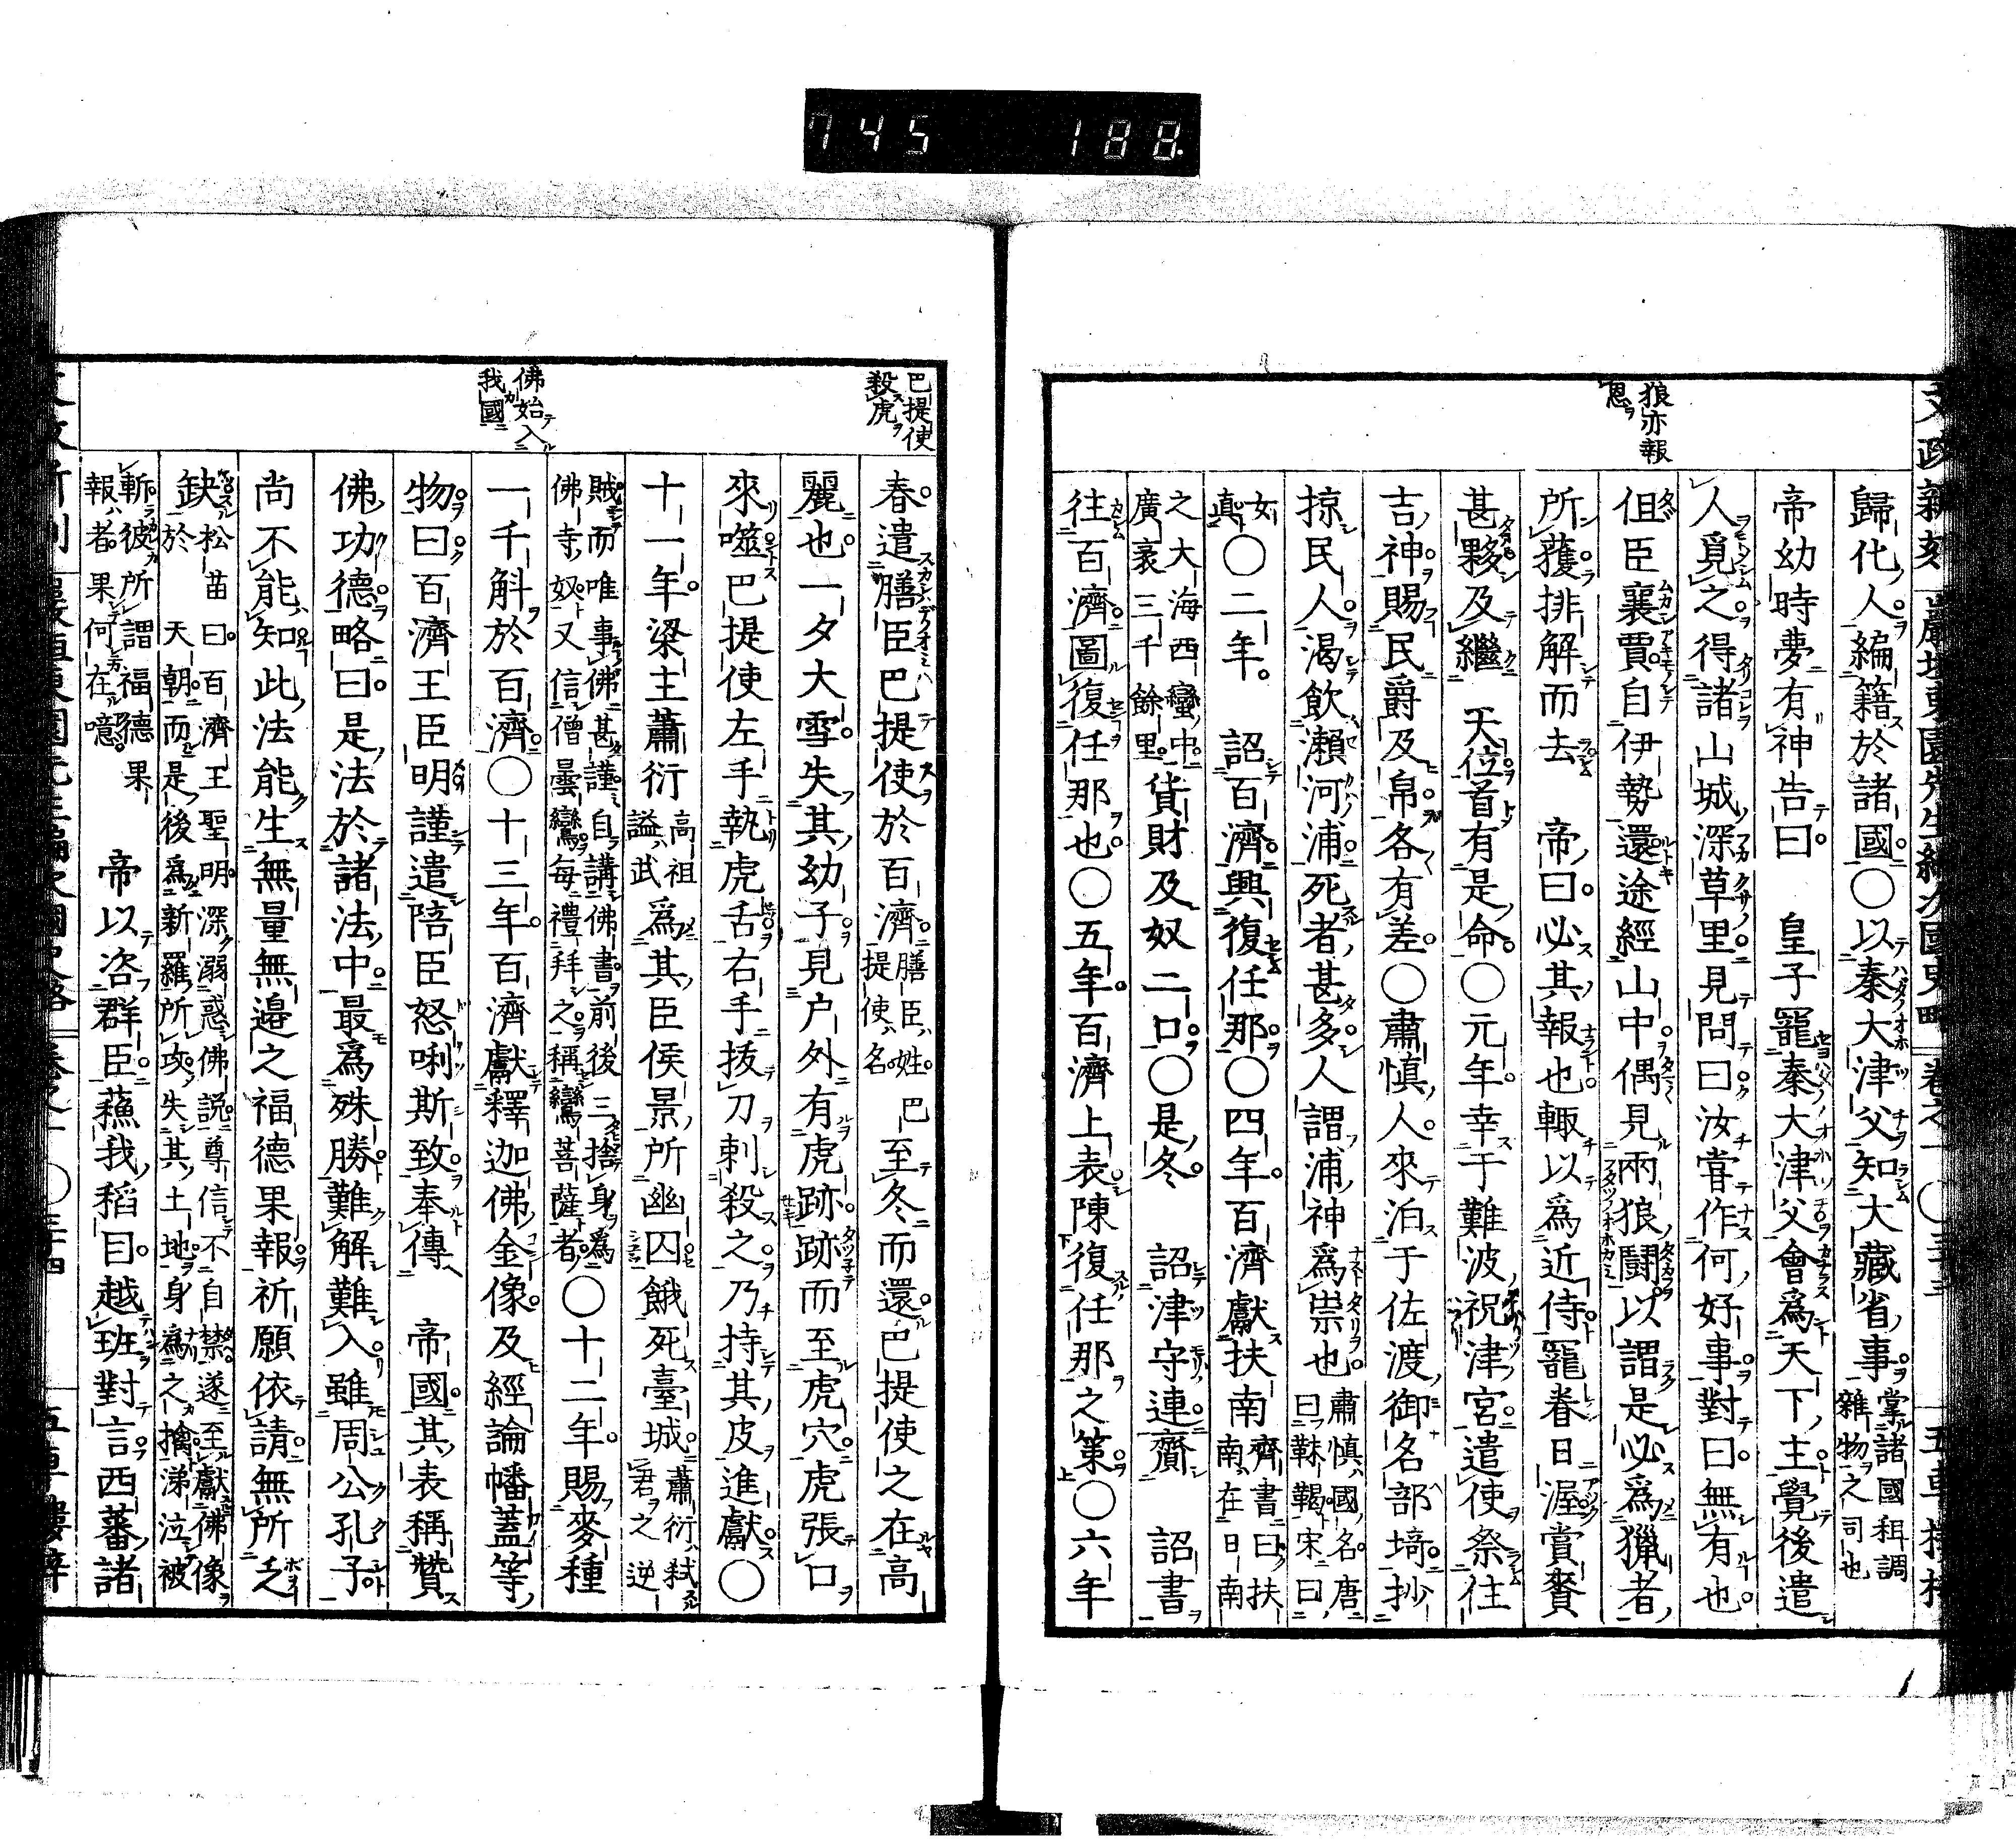 745 188
狼亦報
恩
歸化人編籍於諸國○以秦大津父知大藏省事掌諸國租調雜物之司也
帝幼時夢有神告曰 皇子寵秦大津父會爲天下主覺後遣
人覓之得諸山城深草里見問曰汝甞作何好事對曰無有也
但臣襄賈自伊勢還途經山中偶見兩狼鬪以謂是必爲獵者
所獲排解而去 帝曰必其報也輙以爲近侍寵眷日渥賞賚
甚夥及繼 天位首有是命○元年幸于難波祝津宮遣使祭住
吉神賜民爵及帛各有差○肅慎人來泊于佐渡御名部埼抄
掠民人渴飲瀨河浦死者甚多人謂浦神爲祟也肅慎國名唐曰靺鞨宋曰
女真○二年 詔百濟興復任那○四年百濟獻扶南齊書曰扶南在日南
之大海西蠻中廣袤三千餘里貨財及奴二口○是冬 詔津守連齎 詔書
往百濟圖復任那也○五年百濟上表陳復任那之策○六年
巴提使
殺虎
佛始入
我國
春遣膳臣巴提使於百濟膳臣姓巴提使名至冬而還巴提使之在高
麗也一夕大雪失其幼子見户外有虎跡跡而至虎穴虎張口
來噬巴提使左手執虎舌右手拔刀刺殺之乃持其皮進獻○
十一年梁主蕭衍高祖謚武爲其臣侯景所幽囚餓死臺城蕭衍弒君之逆
賊而唯事佛甚謹自講佛書前後三捨身爲佛寺奴又信僧曇鸞每禮拜之稱鸞菩薩者○十二年賜麥種
一千斛於百濟○十三年百濟獻釋迦佛金像及經論幡蓋等
物曰百濟王臣明謹遣陪臣怒唎斯致奉傳 帝國其表稱贊
佛功德略曰是法於諸法中最爲殊勝難解難入雖周公孔子
尚不能知此法能生無量無邉之福德果報祈願依請無所乏
缺松苗曰百濟王聖明深溺惑佛説尊信不自禁遂至獻佛像於 天朝而是後爲新羅所攻失其土地身爲之擒涕泣被
斬彼所謂福德果報者果何在噫 帝以咨群臣蘓我稻目越班對言西蕃諸